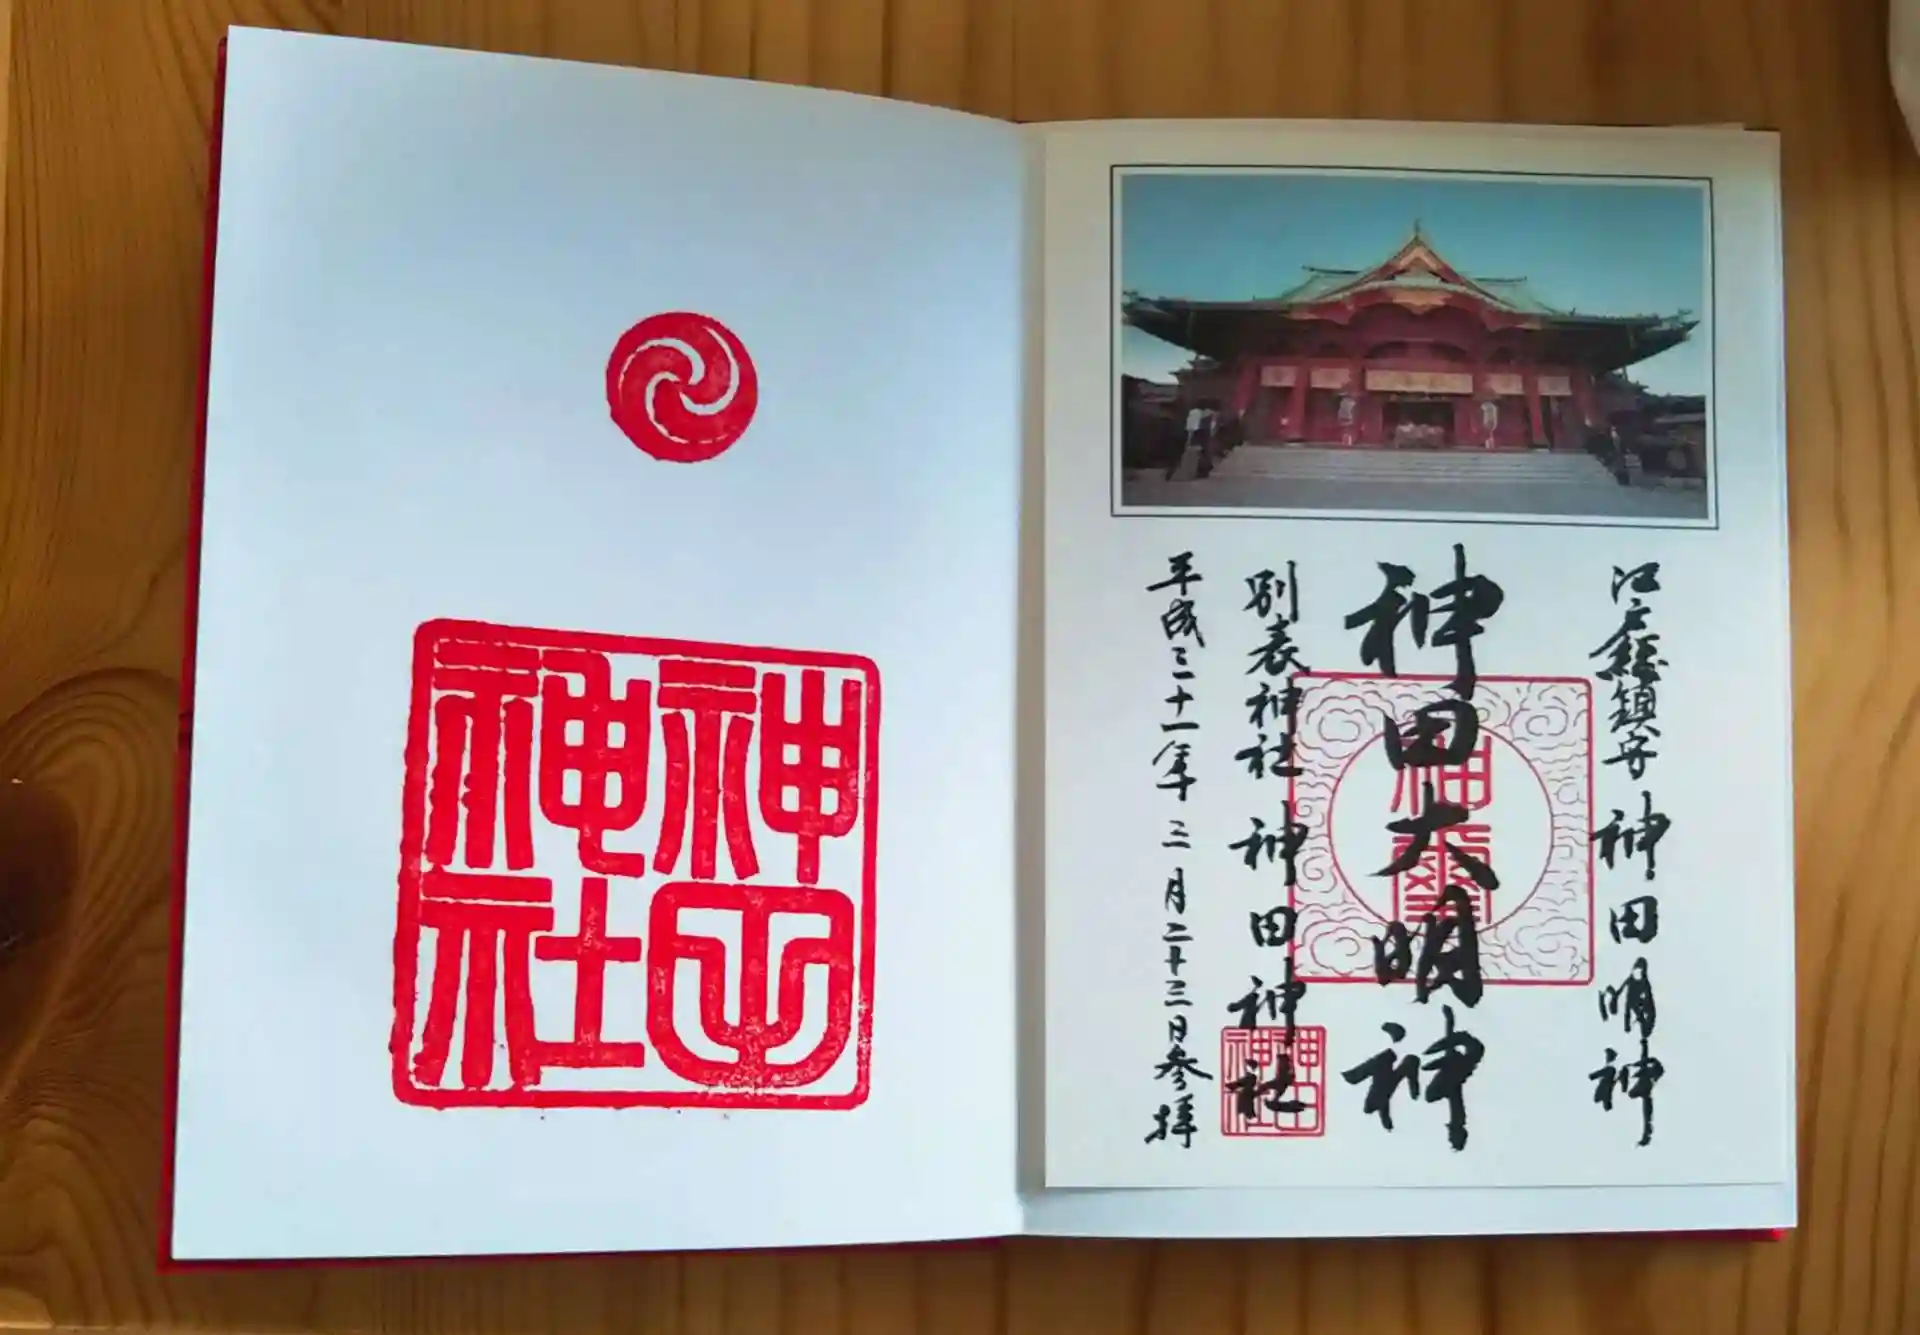 江戸総鎮守 神田明神
神田大明神
別表神社 神田神社
平成三十一年 二月二十三日参拝
神田
神社
神田
神社